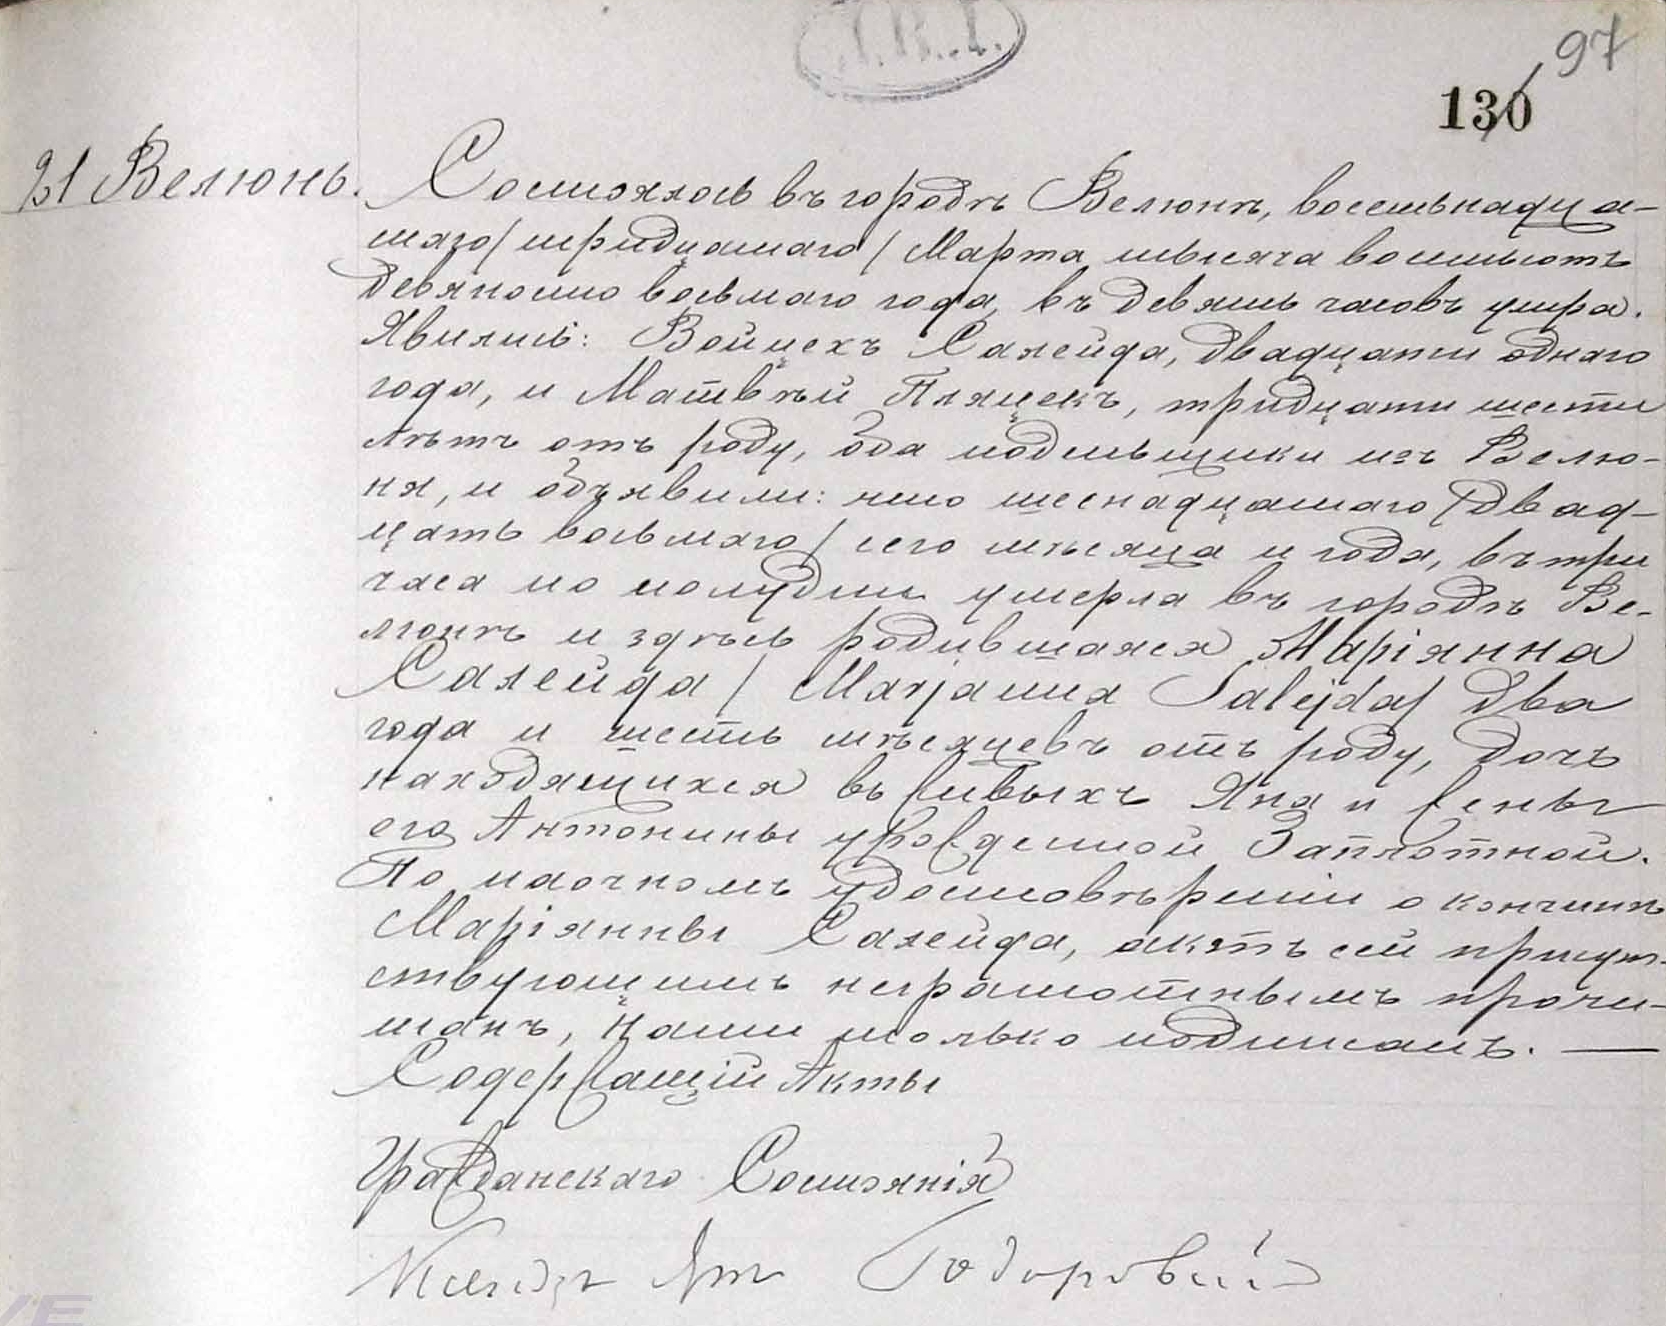 97
130
91 Велюнь.
Состоялось въ городѣ Велюнѣ, восемьнадца-
таго / тридцатаго / Марта тысяча восемьсотъ
девяносто восьмаго года, въ девять часовъ утра.
Явились: Войцехъ Салейда, двадцати однаго
года, и Матвѣй Пляцекъ, тридцати шести
лѣтъ отъ роду, оба поденьщики изъ Велю-
ня, и объявили: что шеснадцатаго / двад-
цать восьмаго / сего мѣсяца и года, въ три
часа по полудни умерла въ городѣ Ве-
люнѣ и здѣсь родившаяся Маріянна
Салейда / Marjanna Salejda / два
года и шесть мѣсяцевъ отъ роду, дочь
находящихся въ живыхъ Яна и жены
его Антонины урожденной Заплотной.
По наочномъ удостовѣреніи о кончинѣ
Маріянны Салейда, актъ сей присут-
ствующимъ неграмотнымъ прочи-
танъ, Нами только подписанъ. —
Содержащій Акты
Гражданскаго Состоянія
Ксендзъ